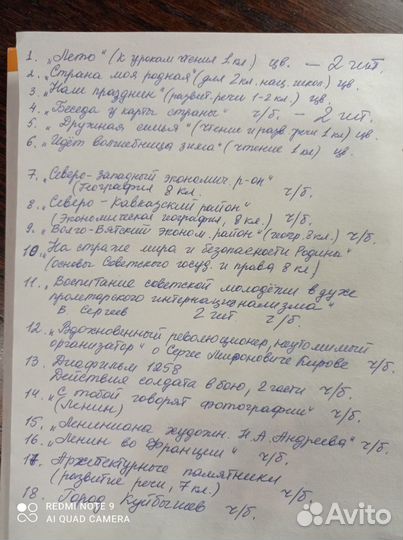 1. „Лето" (к урокам чтения 1 кл) цв. – 2 шт.
2. „Страна моя родная" (для 2 кл. нац. школ) цв.
3. „Наш праздник" (развит. речи 1-2 кл.) цв.
4. „Беседа у карты страны" ч/б. – 2 шт.
5. „Дружная семья" (чтение и разв. речи 1 кл) цв.
6. „Идёт волшебница зима" (чтение 1 кл) цв.
7. „Северо-Западный экономич. р-он"
(География 8 кл. ч/б.
8. „Северо-Кавказский район"
(Экономической география, 8 кл.) ч/б.
9. „Волго-Вятский эконом. район" (геогр. 8 кл.) ч/б.
10. „На страже мира и безопасности Родины"
(основы Советского госуд. и права 8 кл)
11. „Воспитание советской молодёжи в духе
пролетарского интернационализма"
В. Сергеев 2 шт ч/б.
12. „Вдохновенный революционер, неутомимый
организатор" о Сергее Мироновиче Кирове ч/б.
13. Диафильм 1958
Действия солдата в бою, 2 части ч/б.
14. „С тобой говорят фотографии" ч/б.
(Ленин)
15. „Лениниана художн. Н.А. Андреева" ч/б.
16. „Ленин во Франции" ч/б.
17. Архитектурные памятники
(развитие речи, 7 кл.) ч/б.
18. Город Куйбышев ч/б.
REDMI NOTE 9
AI QUAD CAMERA
Avito